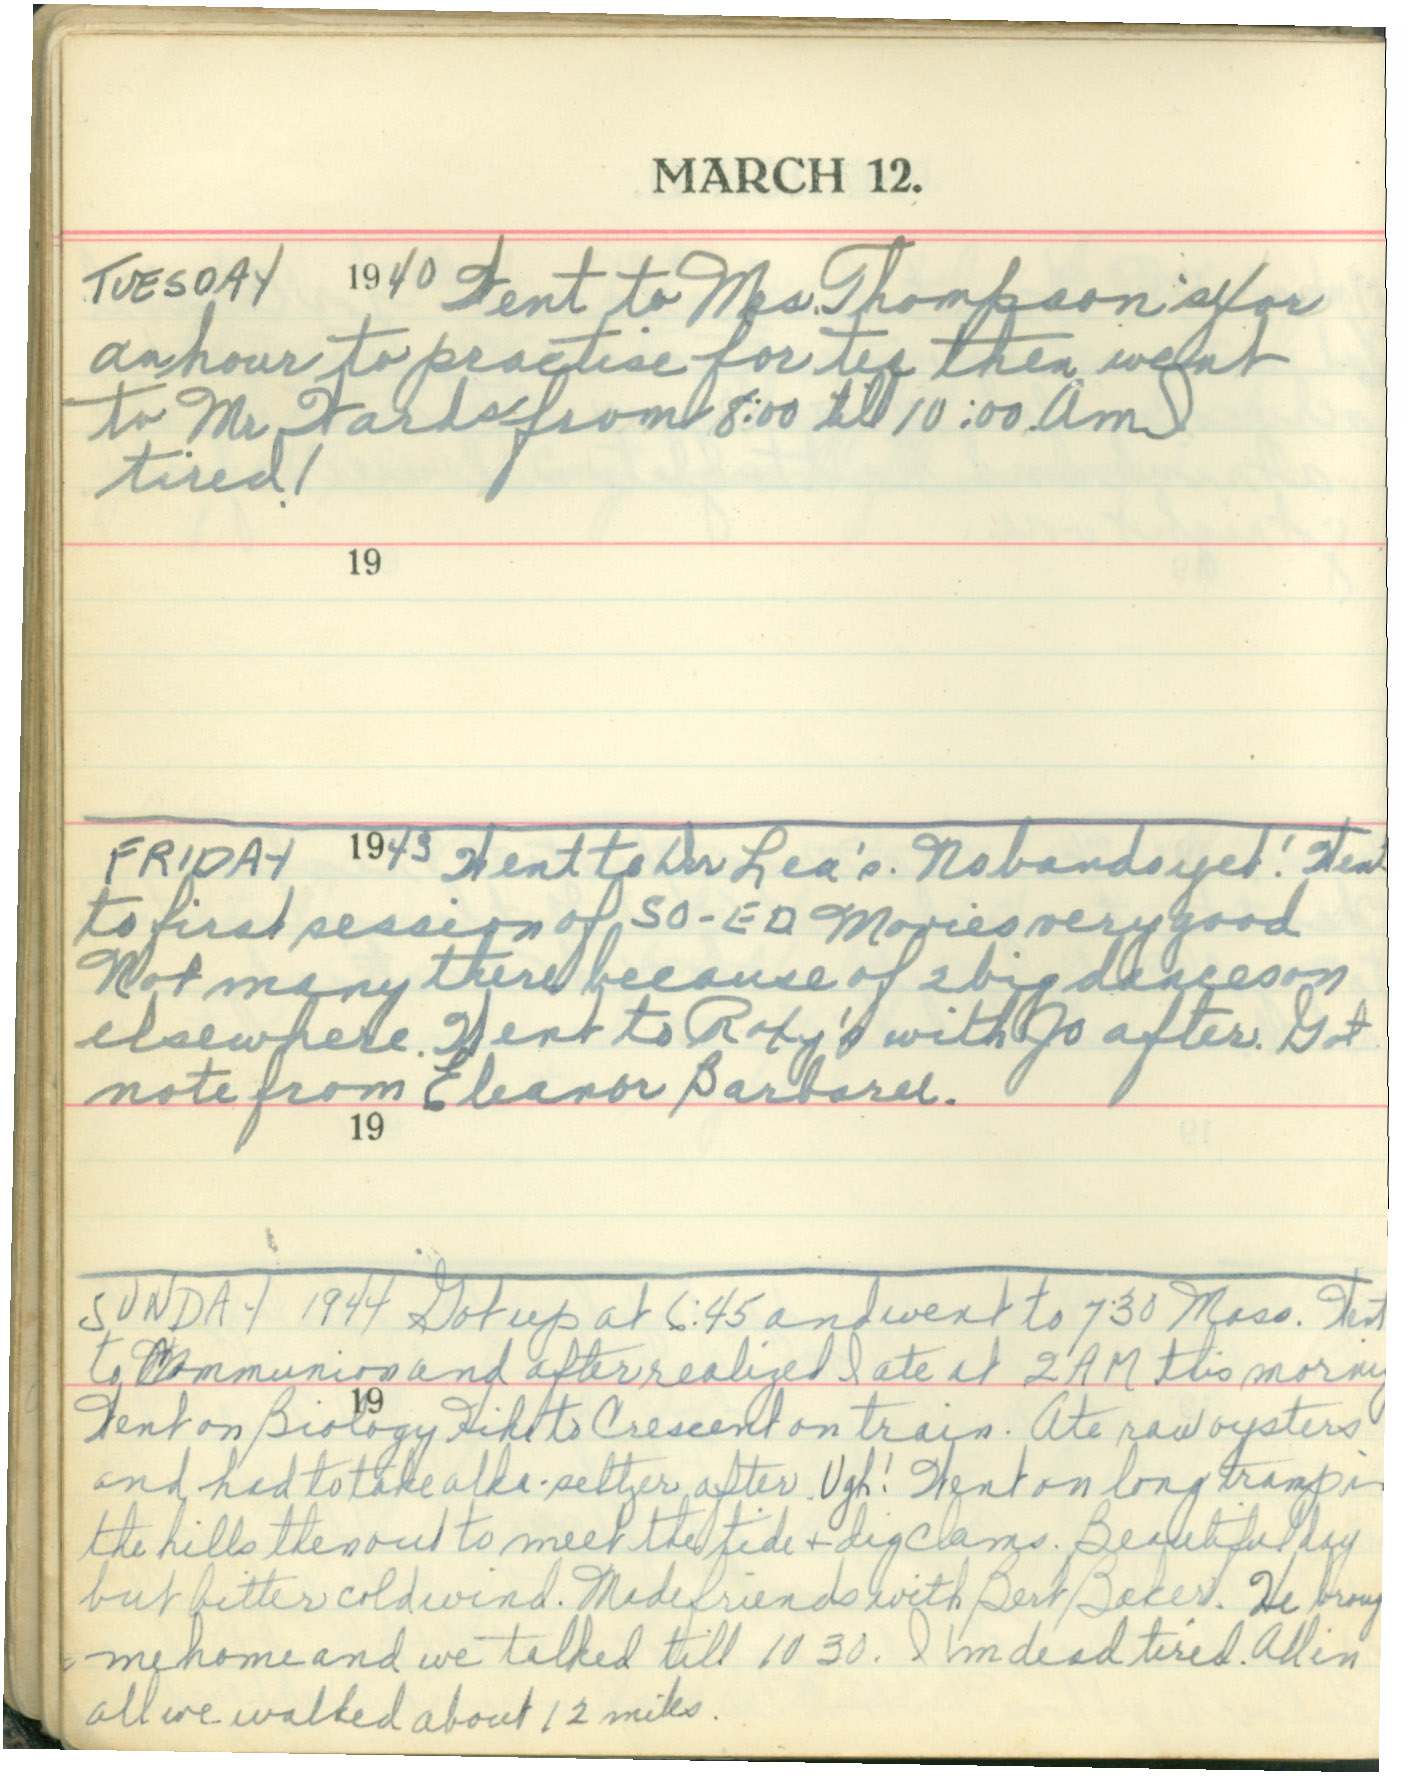 MARCH 12.
TUESDAY 1940 Went to Mrs. Thompson's for
an hour to practise for tea then went
to Mr. Wards from 8:00 till 10:00. Am I
tired!
19
FRIDAY 1943 Went to Dr Lea's. No bands yet! Went
to first session of SO-ED Movies very good
Not many there because of 2 big dances on
elsewhere. Went to Roxy's with Jo after. Got
note from Eleanor
19
SUNDAY 1944 Got up at 6:45 and went to 7:30 Mass. Went
to Communion and after realized I ate at 2 AM this morning
19
Went on Biology Hike to Crescent on train. Ate raw oysters
and had to take alka-seltzer after. Ugh! Went on long tramp in
the hills then out to meet the tide + dig clams. Beautiful day
but bitter cold wind. Made friends with Bert Baker. He broug
me home and we talked till 10 30. I'm dead tired. All in
all we walked about 12 miles.